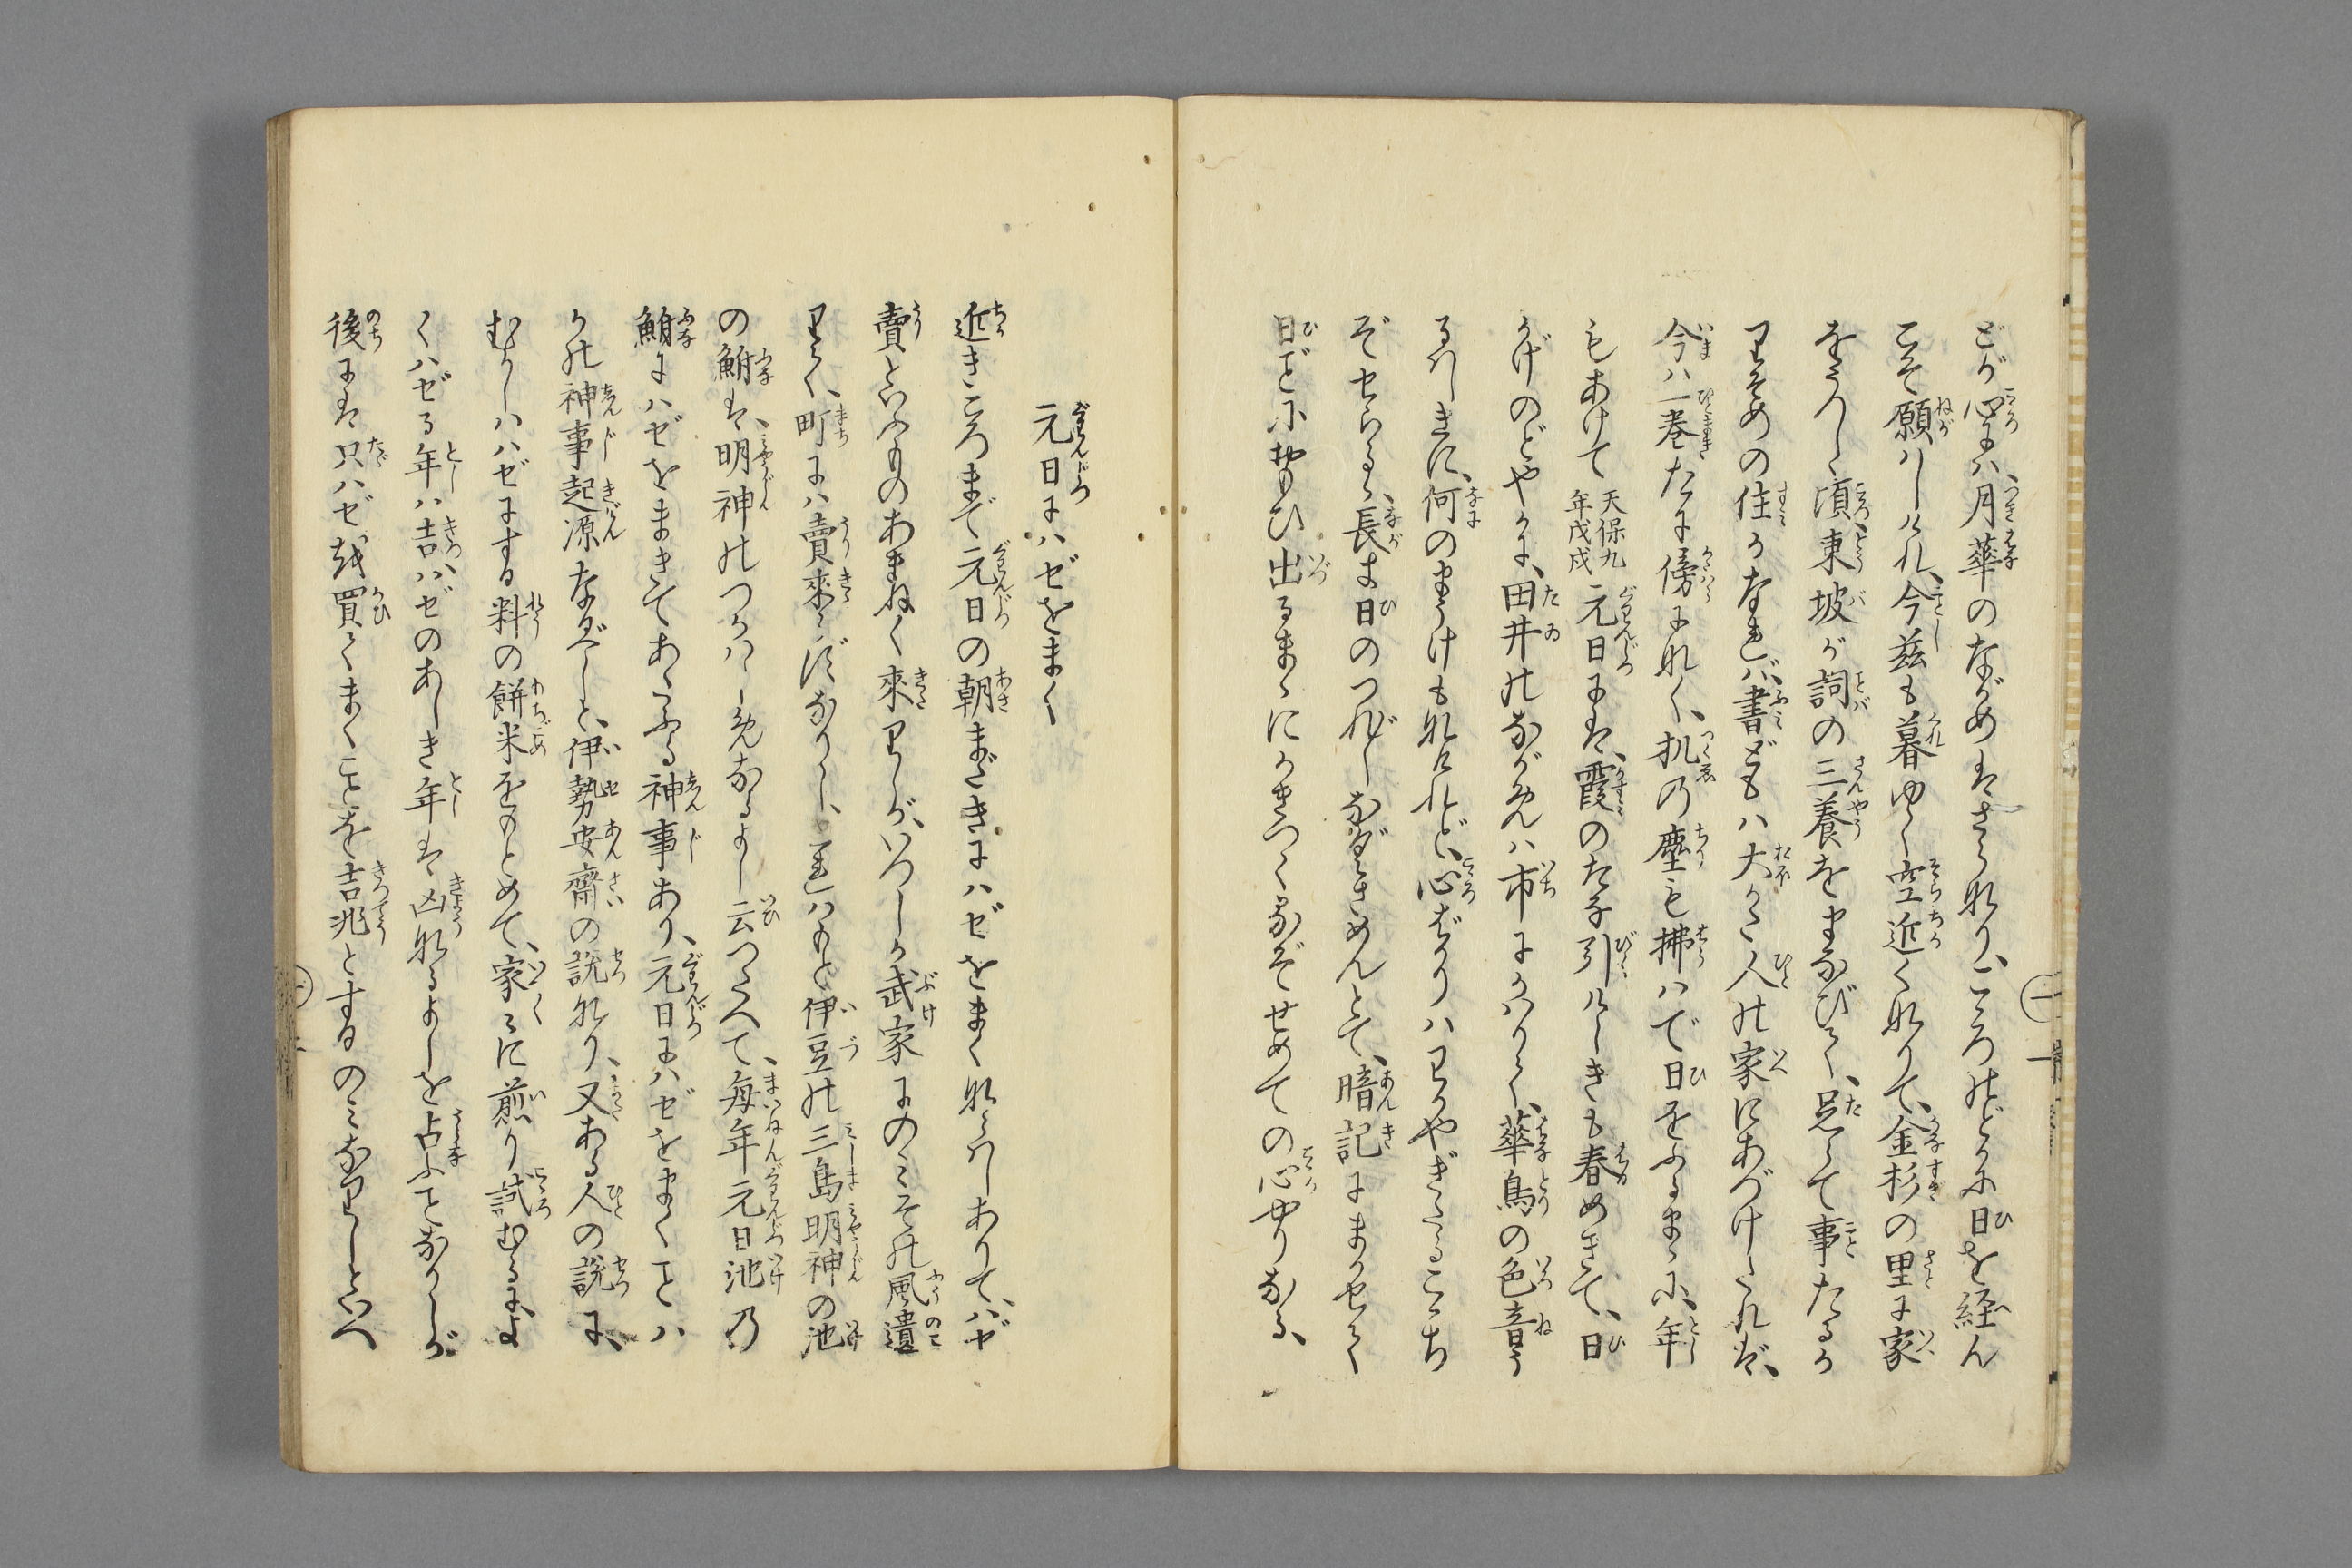 どが心には、月華のながめはさら也、こゝろのどかに日を経ん
こそ願はしけれ、今茲も暮ゆく空近くなりて、金杉の里に家
をうつしゝ頃、東坡が詞の三養をまなびて、足らで事たるか
りそめの住かなれば、書どもは大かた人の家にあづけたれば、
今は一巻だに傍になく、机の塵も拂はで日をふるまゝに、年
もあけて
天保九
年戊戌
元日には、霞のたな引けしきも春めきて、日
かげのどやかに、田井のながめは市にかはりて、華鳥の色音う
るはしきに、何のまうけもなけれど、心ばかりはわかやぎたるこゝち
ぞせらるゝ、長き日のつれ〴〵なぐさめんとて、暗記にまかせて
日ごとに思ひ出るまゝにかきつくるぞせめての心やりなる、
元日にハゼをまく
近きころまで元日の朝まだきにハゼをまくならはしありて、ハゼ
賣といふものあまねく來りしが、いつしか武家にのみその風遺
りて、町には賣來らずなりし、これはもと伊豆の三島明神の池
の鮒は、明神のつかはしめなるよし云つたへて、毎年元日池の
鮒にハゼをまきてあたふる神事あり、元日にハゼをまくことは
かの神事起源なるべしと、伊勢安齋の説なり、又ある人の説に、
むかしはハゼにする料の餅米をもとめて、家々に煎り試むるに、よ
くハゼる年は吉、ハゼのあしき年は凶なるよしを占ふことなりしが
後には只ハゼを買てまくことを吉兆とするのみなりしといへ